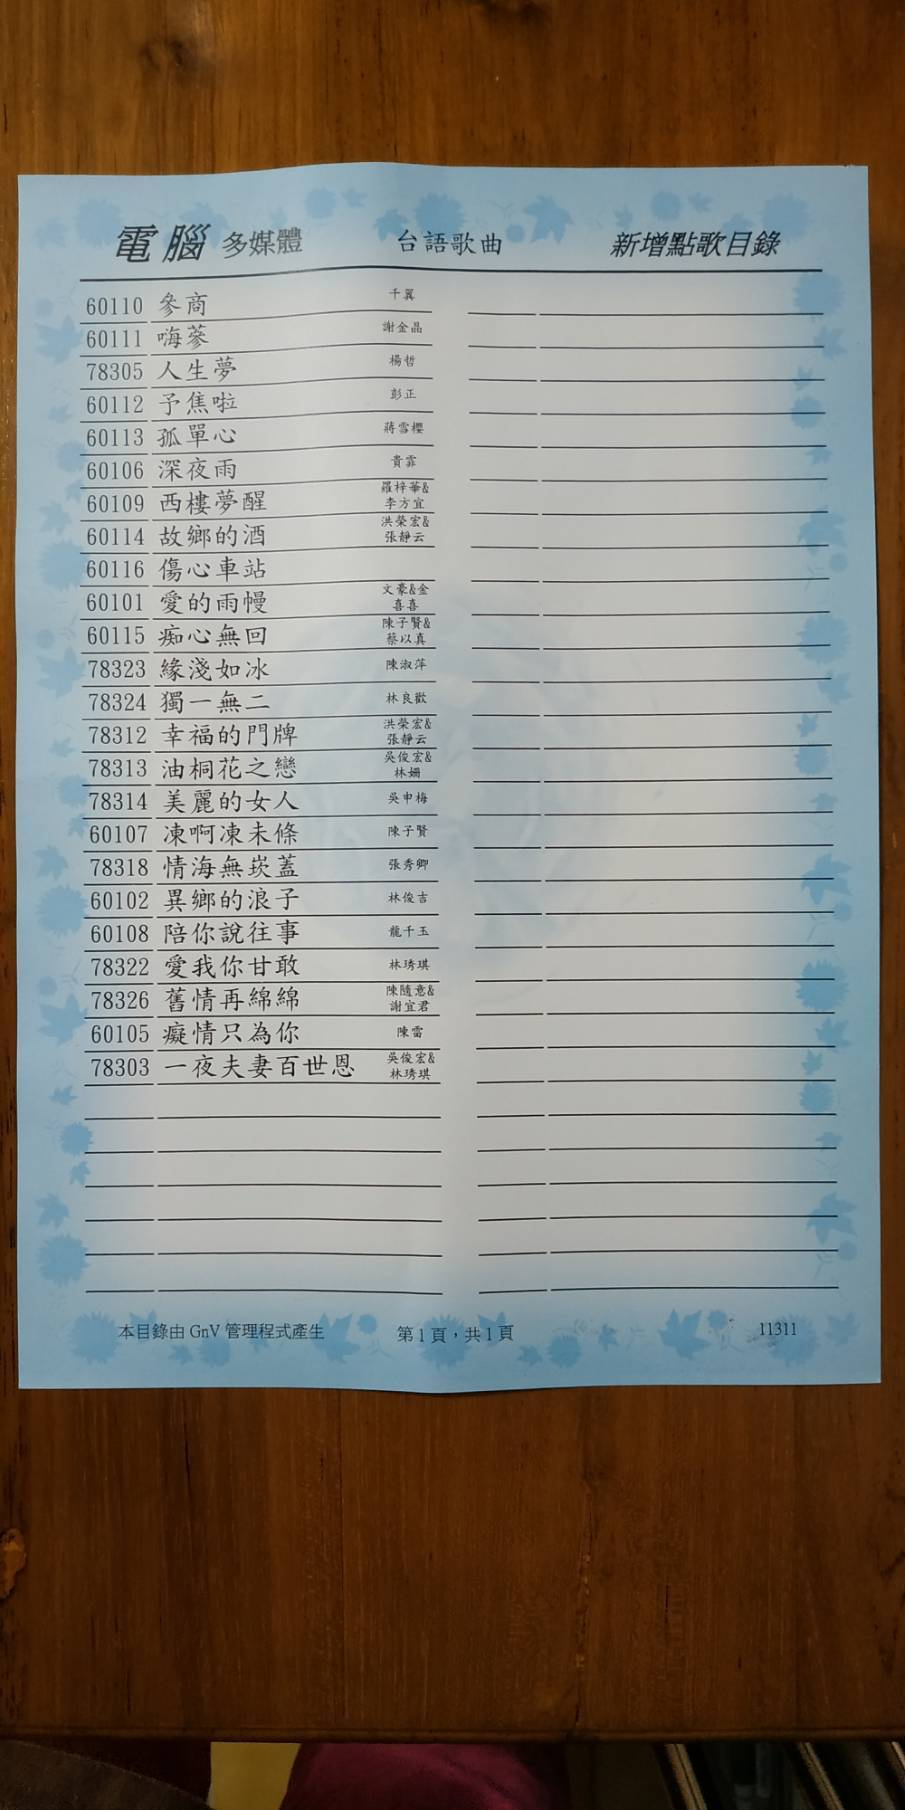 電腦 多媒體 台語歌曲 新增點歌目錄
60110 參商 千翼
60111 嗨蔘 謝金晶
78305 人生夢 楊哲
60112 予焦啦 彭正
60113 孤單心 蔣雪櫻
60106 深夜雨 貴霏
60109 西樓夢醒 羅梓華&李方宜
60114 故鄉的酒 洪榮宏&張靜云
60116 傷心車站
60101 愛的雨幔 文豪&金喜喜
60115 痴心無回 陳子賢&蔡以真
78323 緣淺如冰 陳淑萍
78324 獨一無二 林良歡
78312 幸福的門牌 洪榮宏&張靜云
78313 油桐花之戀 吳俊宏&林姍
78314 美麗的女人 吳申梅
60107 凍啊凍未條 陳子賢
78318 情海無崁蓋 張秀卿
60102 異鄉的浪子 林俊吉
60108 陪你說往事 龍千玉
78322 愛我你甘敢 林琇琪
78326 舊情再綿綿 陳隨意&謝宜君
60105 癡情只為你 陳雷
78303 一夜夫妻百世恩 吳俊宏&林琇琪
本目錄由 GnV 管理程式產生 第1頁，共1頁 11311